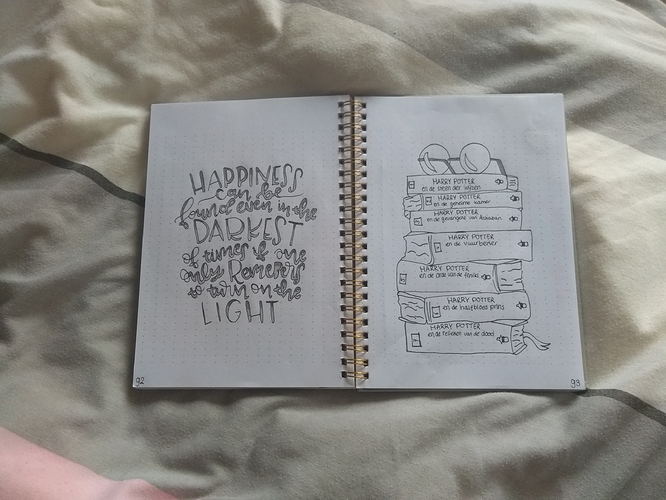 HAPPINESS
can be
found even in the
DARKEST
of times if one
only Remembers
to turn on the
LIGHT
92
HARRY POTTER
en de steen der wijzen
HARRY POTTER
en de geheime kamer
HARRY POTTER
en de gevangene van Azkaban
HARRY POTTER
en de vuurbeker
HARRY POTTER
en de orde van de feniks
HARRY POTTER
en de halfbloed prins
HARRY POTTER
en de relieken van de dood
93